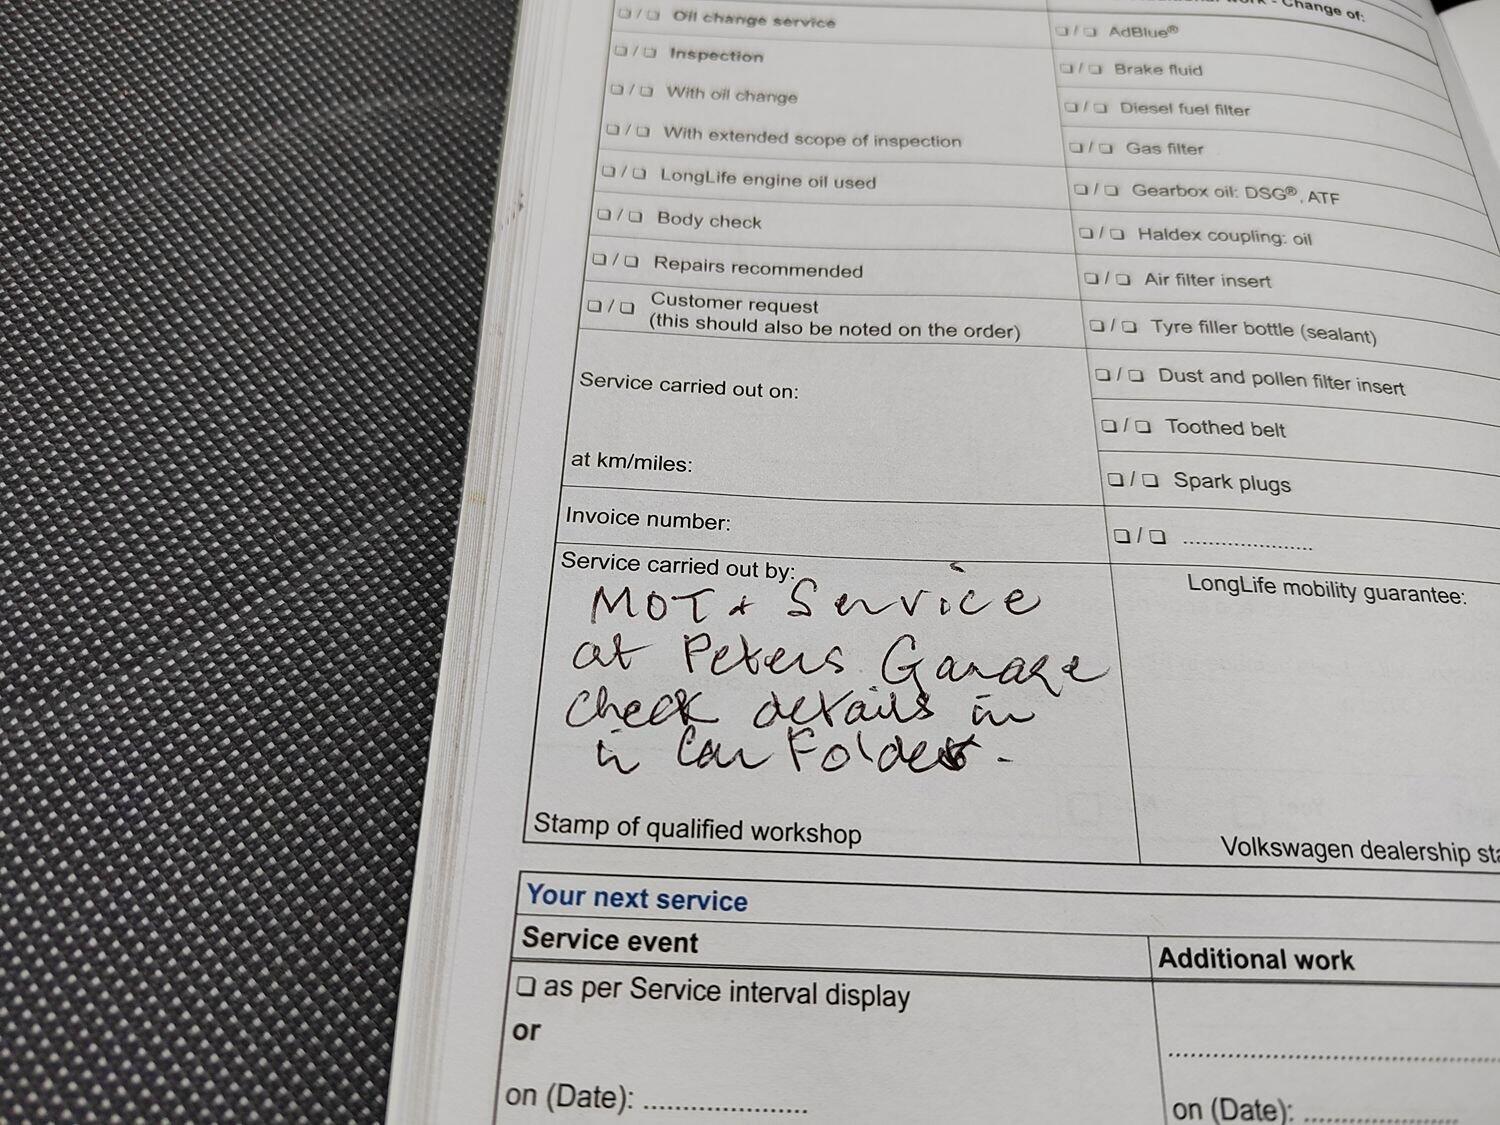 Change of:
❏ / ❏ Oil change service
❏ / ❏ Inspection
❏ / ❏ With oil change
❏ / ❏ With extended scope of inspection
❏ / ❏ LongLife engine oil used
❏ / ❏ Body check
❏ / ❏ Repairs recommended
❏ / ❏ Customer request
(this should also be noted on the order)
Service carried out on:
at km/miles:
Invoice number:
Service carried out by:
MOT + Service
at Peters Garage
check details in
in Car Folder.
Stamp of qualified workshop
❏ / ❏ AdBlue®
❏ / ❏ Brake fluid
❏ / ❏ Diesel fuel filter
❏ / ❏ Gas filter
❏ / ❏ Gearbox oil: DSG®, ATF
❏ / ❏ Haldex coupling: oil
❏ / ❏ Air filter insert
❏ / ❏ Tyre filler bottle (sealant)
❏ / ❏ Dust and pollen filter insert
❏ / ❏ Toothed belt
❏ / ❏ Spark plugs
❏ / ❏ ......................
LongLife mobility guarantee:
Volkswagen dealership
Your next service
Service event
❏ as per Service interval display
or
on (Date): ......................
Additional work
......................
on (Date): ......................